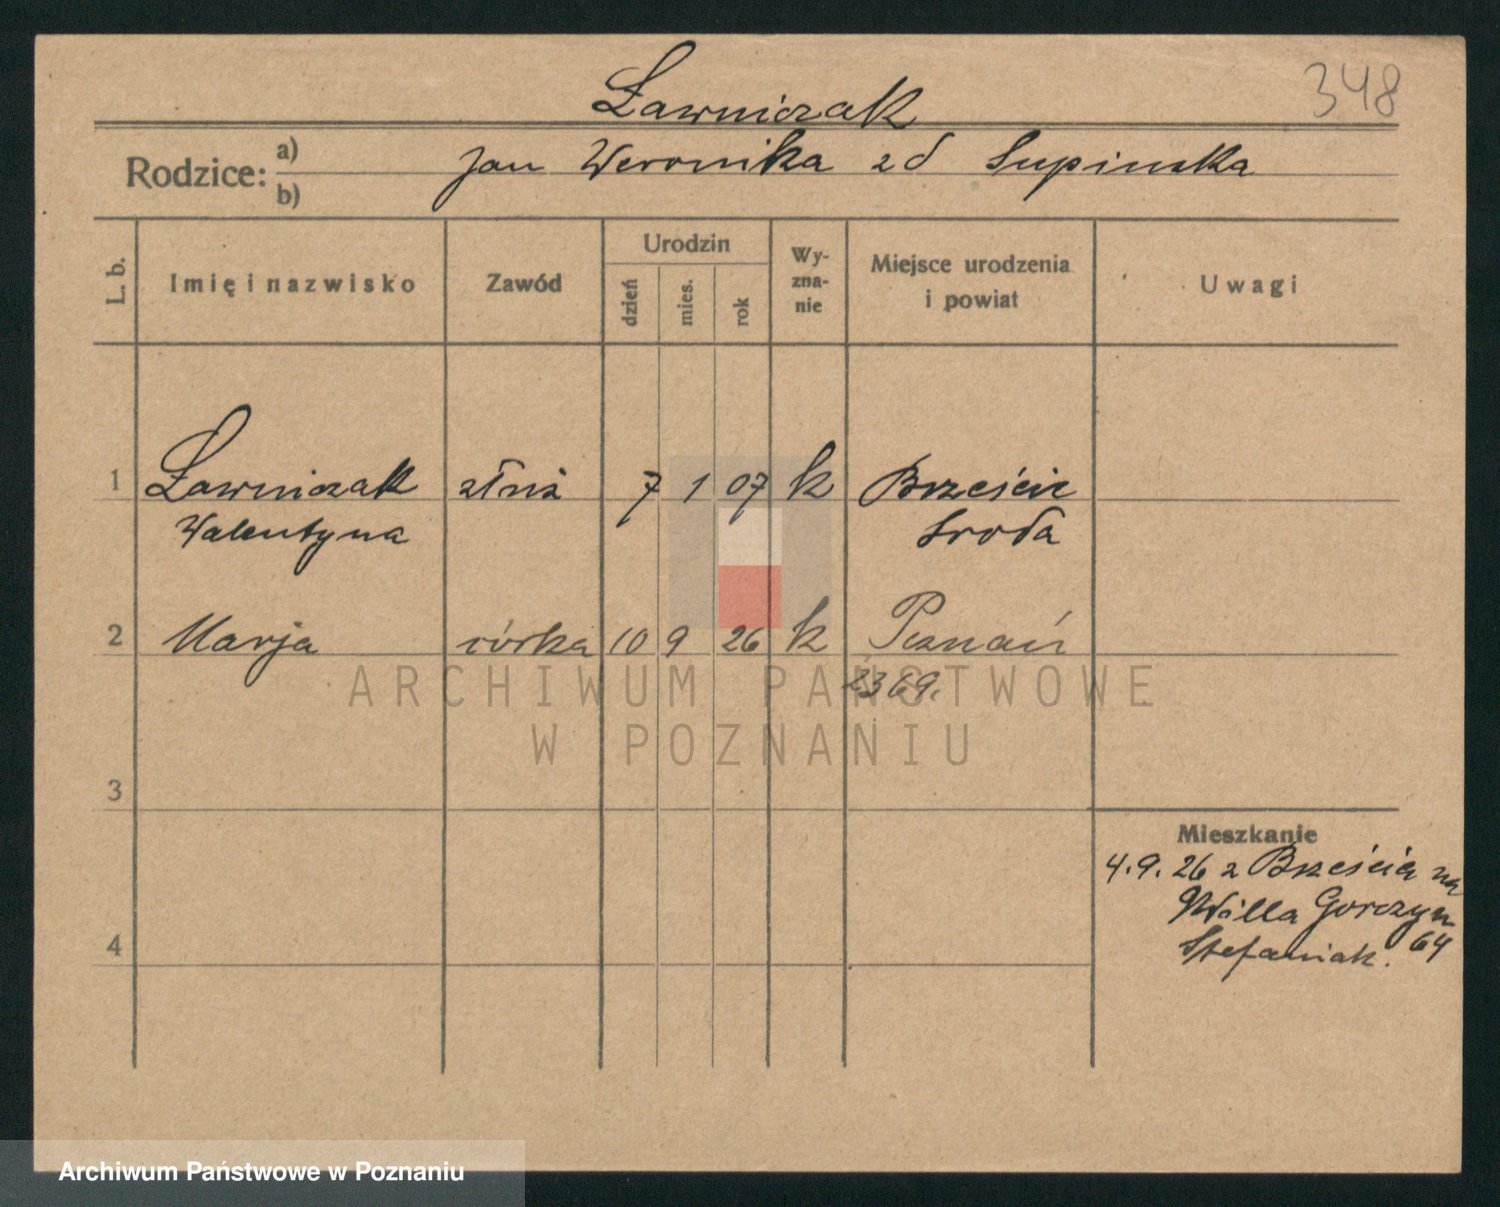 348
Ławniczak
Rodzice: a) Jan Weronika zd Supinska
b)
L. b.
Imię i nazwisko
Zawód
Urodzin
dzień
mies.
rok
Wy-
zna-
nie
Miejsce urodzenia
i powiat
Uwagi
1 Ławniczak 7 1 07 k Brzeście
Walentyna Sroda
2 Marja córka 10 9 26 k Poznań
2369.
3
4
Mieszkanie
4.9.26 z Brześcia na
Willa Gorczyn
Stefaniak. 64
ARCHIWUM PAŃSTWOWE
W POZNANIU
Archiwum Państwowe w Poznaniu